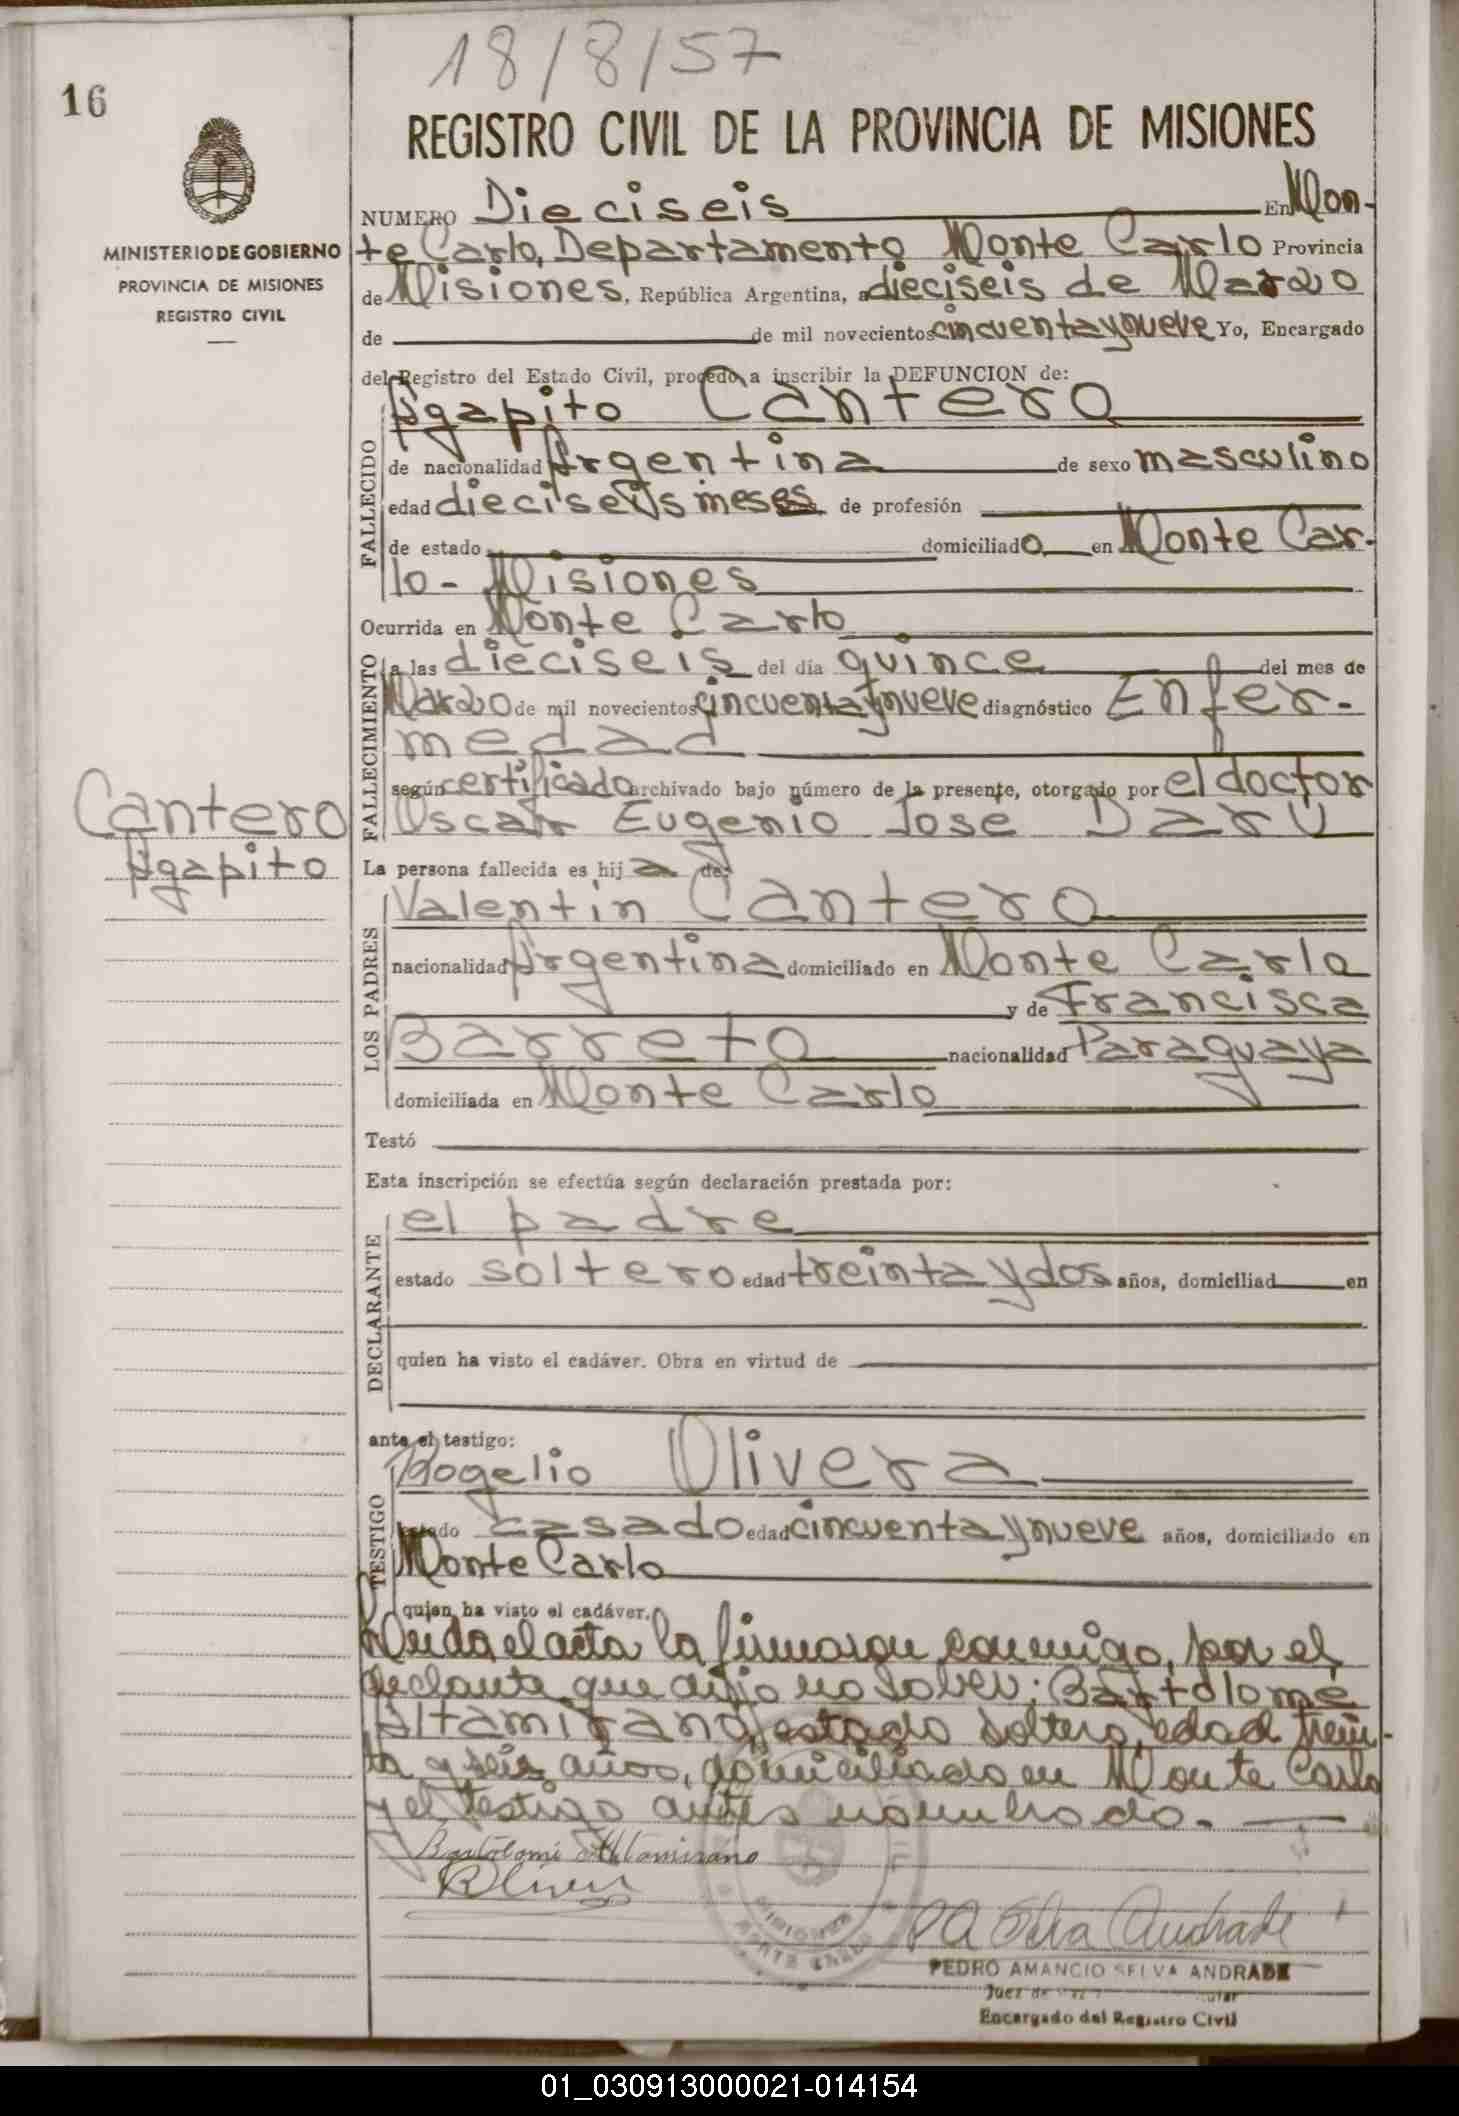 18/8/57
16
REGISTRO CIVIL DE LA PROVINCIA DE MISIONES
MINISTERIO DE GOBIERNO
PROVINCIA DE MISIONES
REGISTRO CIVIL
NUMERO Dieciseis En Mon-
te Carlo, Departamento Monte Carlo Provincia
de Misiones, República Argentina, a dieciseis de Marzo
de de mil novecientos cincuenta y nueve Yo, Encargado
del Registro del Estado Civil, procedo a inscribir la DEFUNCION de:
FALLECIDO
Agapito Cantero
de nacionalidad Argentina de sexo masculino
edad dieciseis meses de profesión
de estado domiciliado en Monte Car-
lo - Misiones
Ocurrida en Monte Carlo
FALLECIMIENTO
a las dieciseis del día quince del mes de
Marzo de mil novecientos cincuenta y nueve diagnóstico Enfer-
medad
según certificado archivado bajo número de la presente, otorgado por el doctor
Oscar Eugenio Jose Daru
Cantero
Agapito
La persona fallecida es hija de:
LOS PADRES
Valentin Cantero
nacionalidad Argentina domiciliado en Monte Carlo
y de Francisca
Barreto nacionalidad Paraguaya
domiciliada en Monte Carlo
Testó
Esta inscripción se efectúa según declaración prestada por:
DECLARANTE
el padre
estado soltero edad treinta y dos años, domiciliad en
quien ha visto el cadáver. Obra en virtud de
ante el testigo:
TESTIGO
Rogelio Olivera
estado casado edad cincuenta y nueve años, domiciliado en
Monte Carlo
quien ha visto el cadáver.
Leida el acta la firmaron conmigo, por el
declante que dijo no saber: Bartolome
Altamirano, estado soltero, edad trein-
ta y seis años, domiciliado en Monte Carlo
y el testigo antes nombrado.-
Bartolomé Altamirano
MISIONES
MONTE CARLO
P A Selva Andrade
PEDRO AMANCIO SELVA ANDRADE
Juez de Paz
Encargado del Registro Civil
01_030913000021-014154